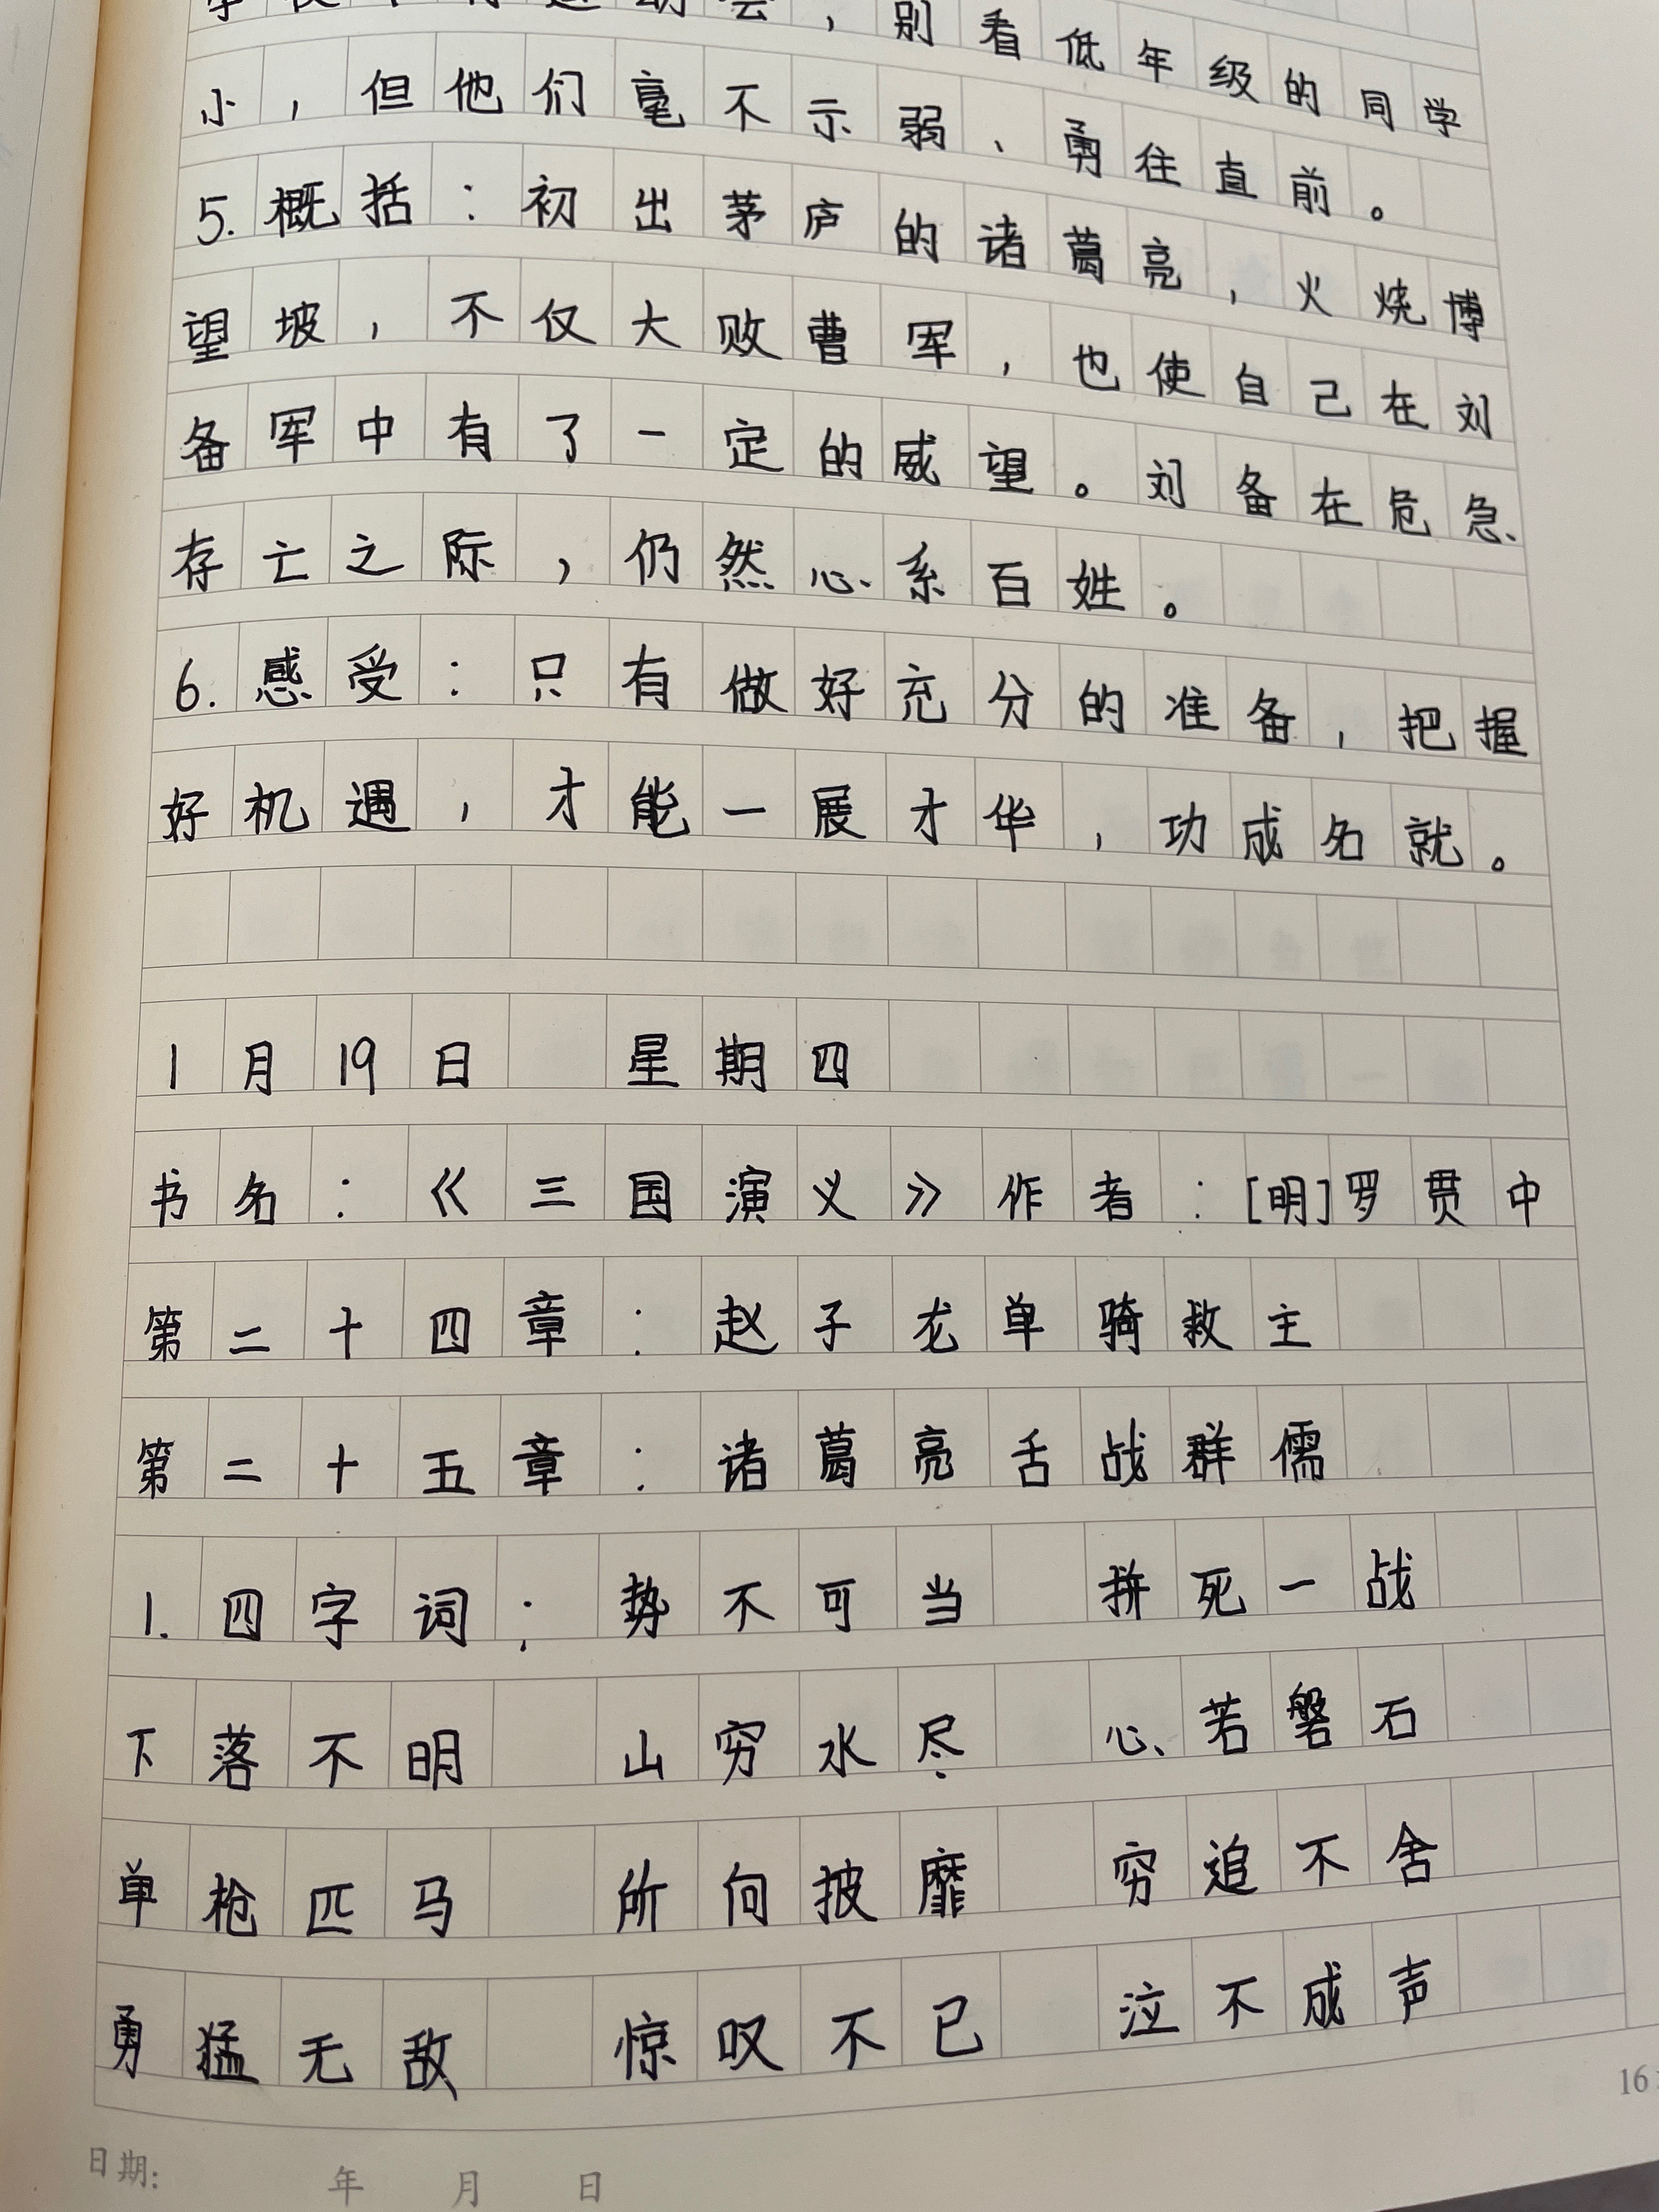 会，别看低年级的同学
小，但他们毫不示弱、勇往直前。
5.概括：初出茅庐的诸葛亮，火烧博
望坡，不仅大败曹军，也使自己在刘
备军中有了一定的威望。刘备在危急
存亡之际，仍然心系百姓。
6.感受：只有做好充分的准备，把握
好机遇，才能一展才华，功成名就。
1月19日 星期四
书名：《三国演义》作者：[明]罗贯中
第二十四章：赵子龙单骑救主
第二十五章：诸葛亮舌战群儒
1.四字词：势不可当 拼死一战
下落不明 山穷水尽 心若磐石
单枪匹马 所向披靡 穷追不舍
勇猛无敌 惊叹不已 泣不成声
16
日期： 年 月 日